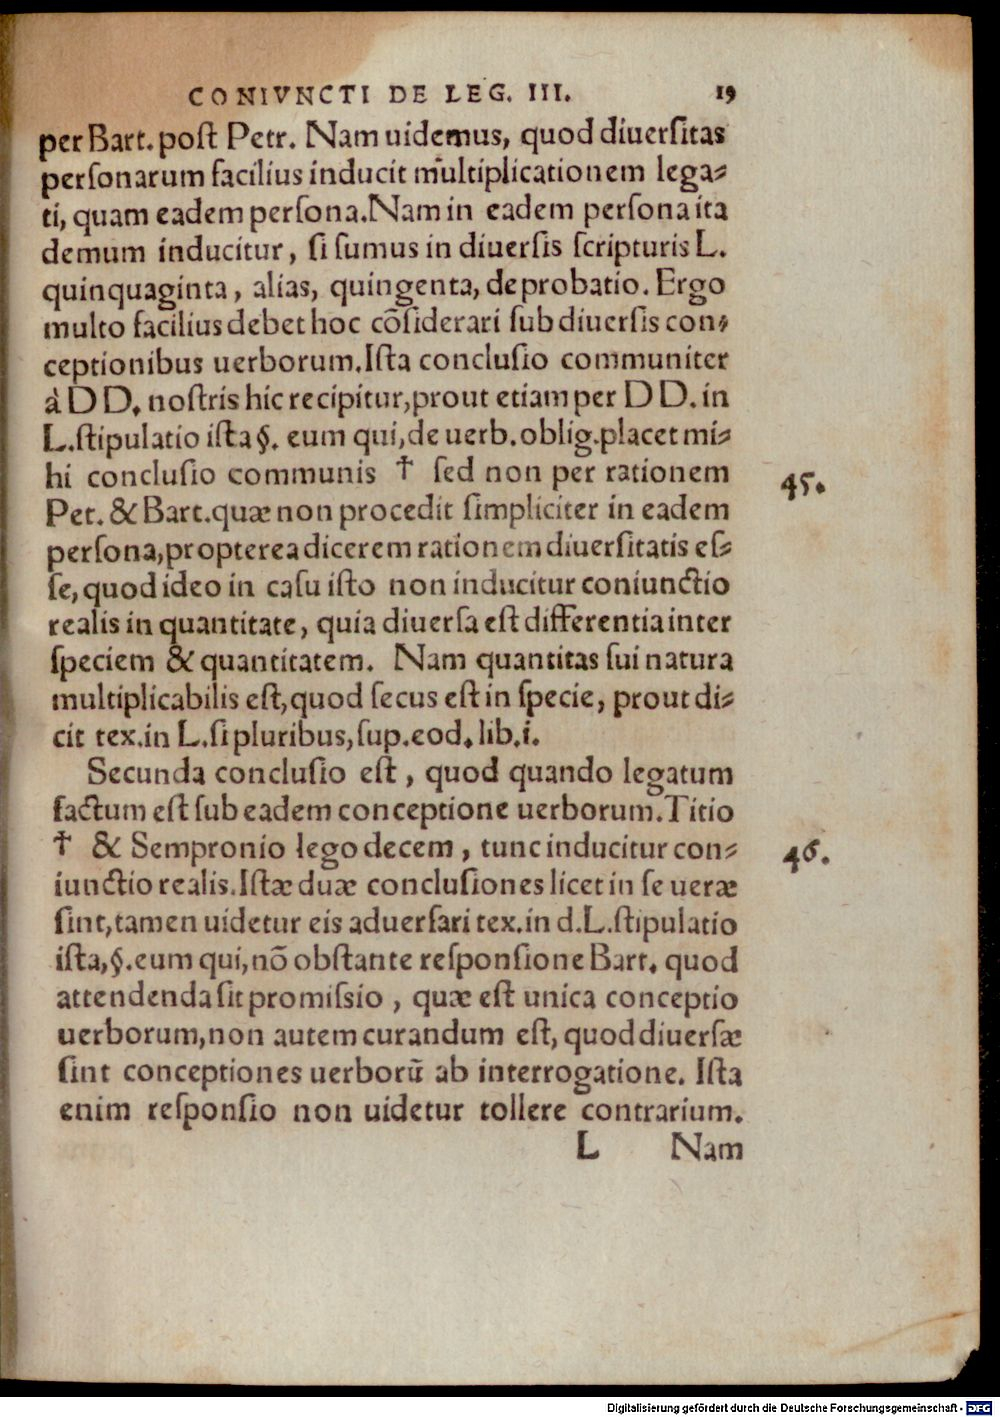 CONIVNCTI DE LEG. III. 19
per Bart. poſt Petr. Nam uidemus, quod diuerſitas
perſonarum facilius inducit multiplicationem lega⸗
ti, quam eadem perſona. Nam in eadem perſona ita
demum inducitur, ſi ſumus in diuerſis ſcripturis L.
quinquaginta, alias, quingenta, de probatio. Ergo
multo facilius debet hoc cõſiderari ſub diuerſis con⸗
ceptionibus uerborum. Iſta concluſio communiter
à DD. noſtris hic recipitur, prout etiam per DD. in
L. ſtipulatio iſta §. eum qui, de uerb. oblig. placet mi⸗
hi concluſio communis † ſed non per rationem
45.
Pet. & Bart. quæ non procedit ſimpliciter in eadem
perſona, propterea dicerem rationem diuerſitatis eſ⸗
ſe, quod ideo in caſu iſto non inducitur coniunctio
realis in quantitate, quia diuerſa eſt differentia inter
ſpeciem & quantitatem. Nam quantitas ſui natura
multiplicabilis eſt, quod ſecus eſt in ſpecie, prout di⸗
cit tex. in L. ſi pluribus, ſup. eod. lib. i.
Secunda concluſio eſt, quod quando legatum
factum eſt ſub eadem conceptione uerborum. Titio
† & Sempronio lego decem, tunc inducitur con⸗
46.
iunctio realis. Iſtæ duæ concluſiones licet in ſe ueræ
ſint, tamen uidetur eis aduerſari tex. in d. L. ſtipulatio
iſta, §. eum qui, nõ obſtante reſponſione Bart. quod
attendenda ſit promiſsio, quæ eſt unica conceptio
uerborum, non autem curandum eſt, quod diuerſæ
ſint conceptiones uerborũ ab interrogatione. Iſta
enim reſponſio non uidetur tollere contrarium.
L Nam
Digitalisierung gefördert durch die Deutsche Forschungsgemeinschaft - DFG